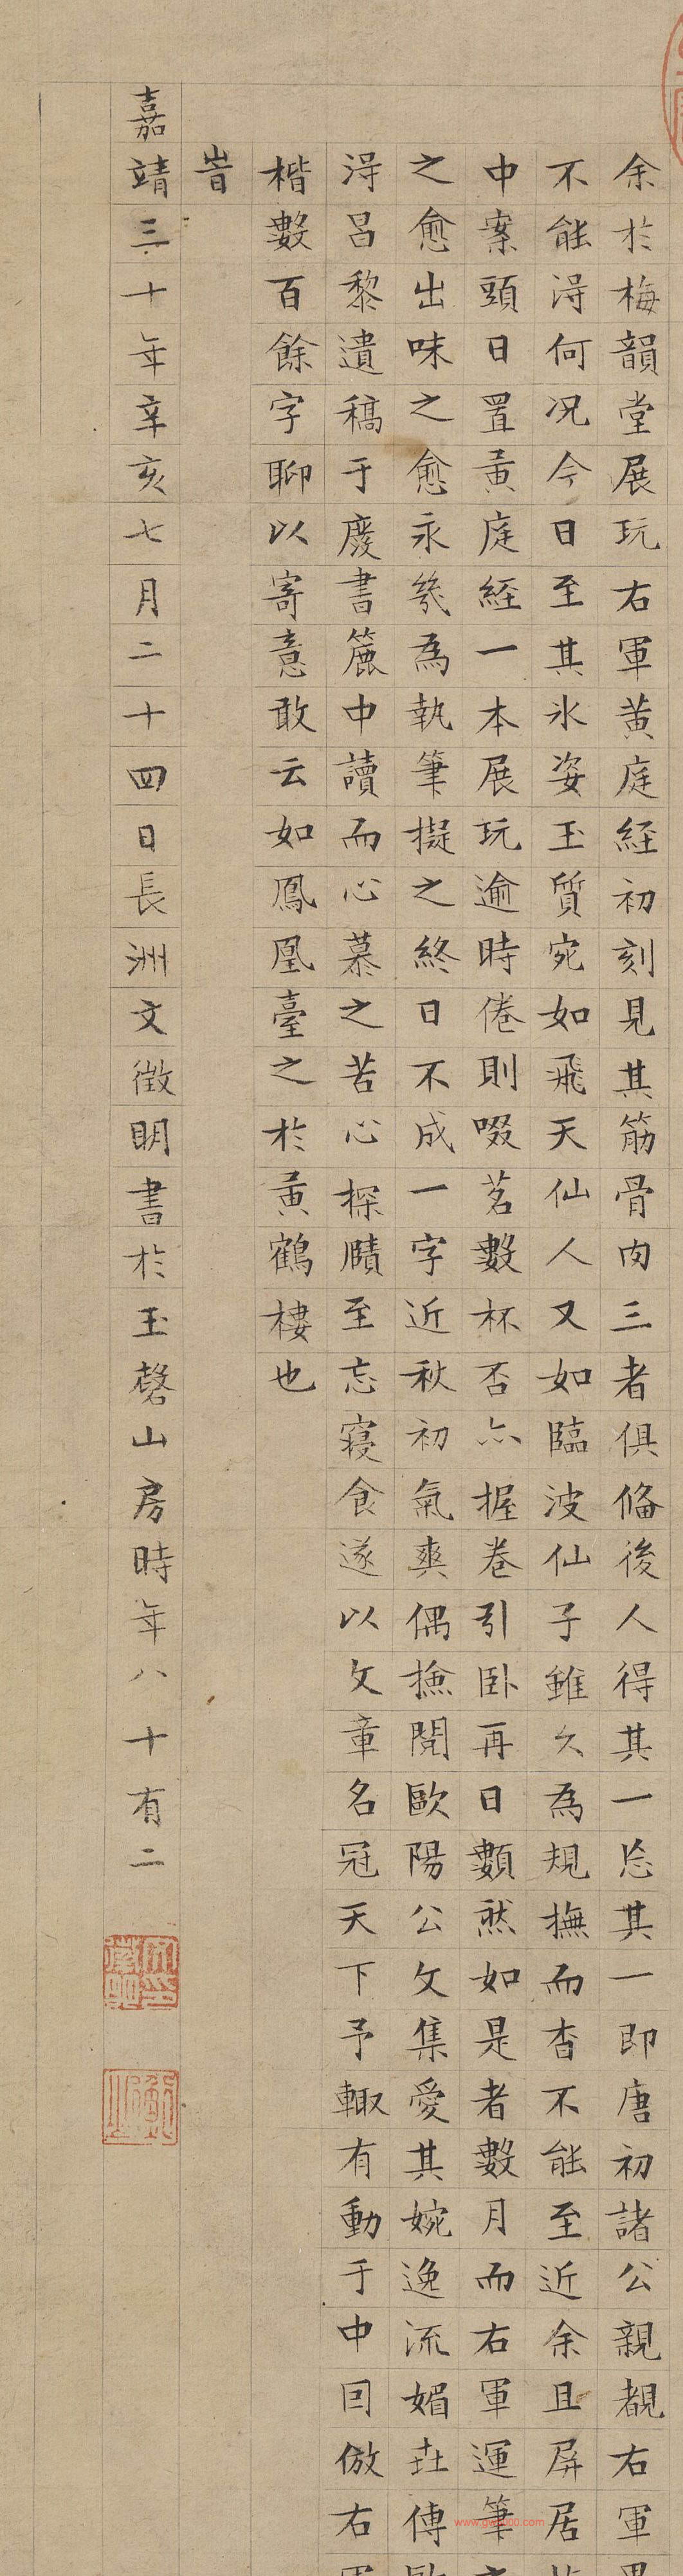 余於梅韻堂展玩右軍黄庭經初刻見其筋骨肉三者俱俻後人得其一忘其一即唐初諸公親覩右軍
不能淂何况今日至其氷姿玉質宛如飛天仙人又如臨波仙子雖久為規撫而杳不能至近余且屏居
中案頭日置黄庭經一本展玩逾時倦則啜茗數杯否亦握卷引卧再日數然如是者數月而右軍運筆
之愈出味之愈永㡬為執筆擬之終日不成一字近秋初氣爽偶撿閱歐陽公文集愛其婉逸流媚丗傳
淂呂黎遺稿于廢書簏中讀而心慕之苦心探賾至忘寝食遂以文章名冠天下予輙有動于中囙倣右
楷數百餘字聊以寄意敢云如鳳凰臺之於黄鶴樓也
旹
嘉靖三十年辛亥七月二十四日長洲文徵明書於玉磬山房時年八十有二
www.gw8000.com